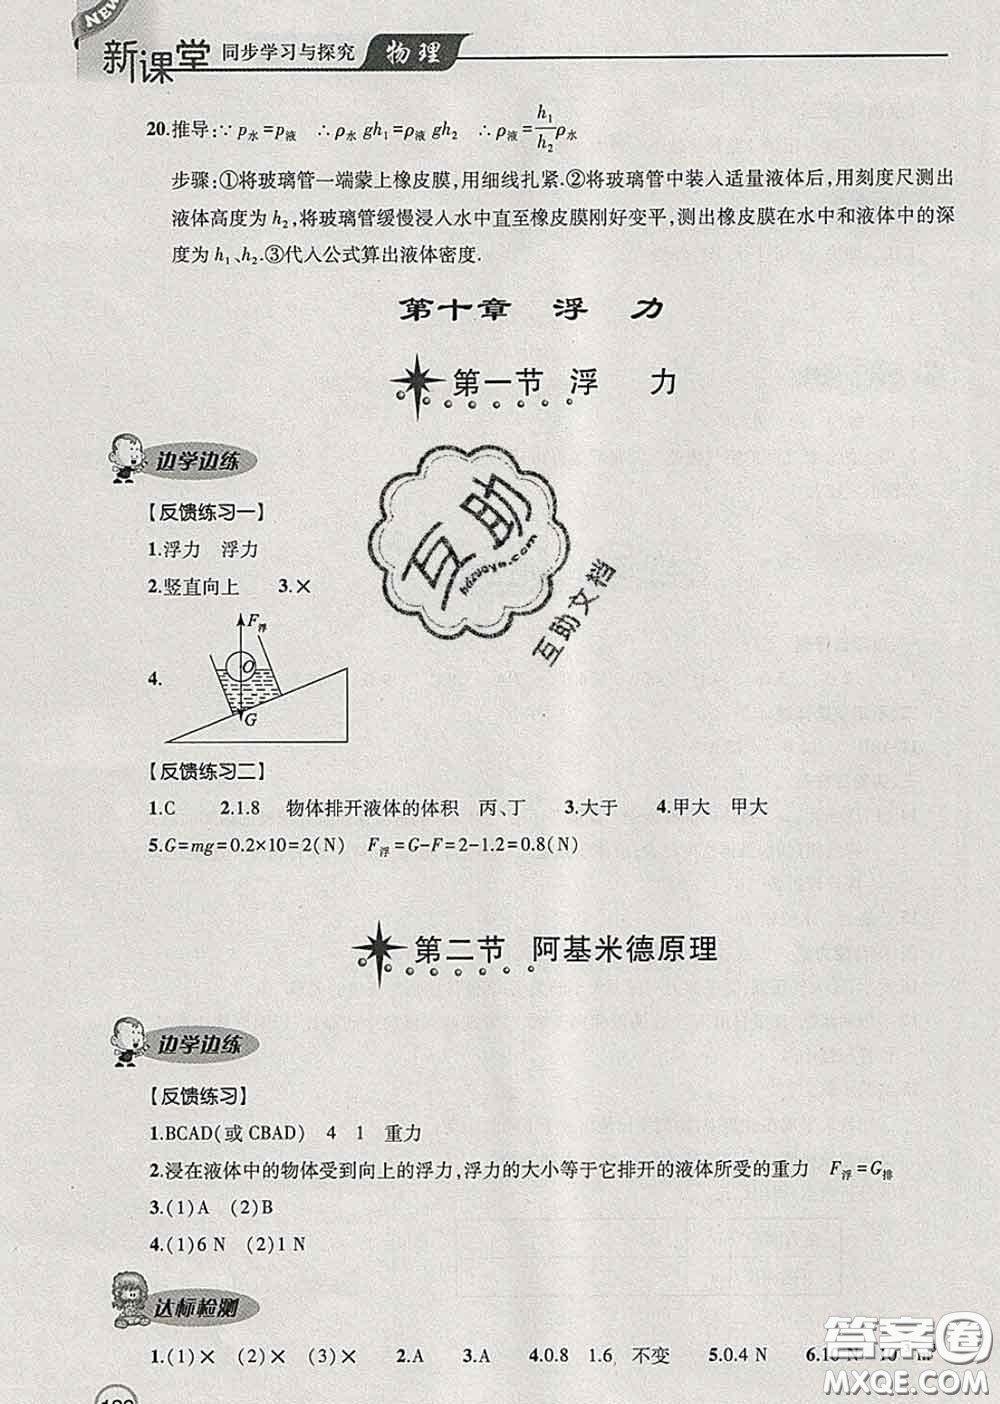 NEW
新课堂 同步学习与探究 物理
20.推导:∵p水=p液 ∴ρ水gh₁=ρ液gh₂ ∴ρ液=h₁/h₂ρ水
步骤:①将玻璃管一端蒙上橡皮膜,用细线扎紧.②将玻璃管中装入适量液体后,用刻度尺测出
液体高度为h₂,将玻璃管缓慢浸入水中直至橡皮膜刚好变平,测出橡皮膜在水中和液体中的深
度为h₁、h₂.③代入公式算出液体密度.
第十章 浮 力
第一节 浮 力
边学边练
【反馈练习一】
1.浮力 浮力
2.竖直向上 3.×
4.
F浮
O
G
【反馈练习二】
1.C 2.1.8 物体排开液体的体积 丙、丁 3.大于 4.甲大 甲大
5.G=mg=0.2×10=2(N) F浮=G-F=2-1.2=0.8(N)
第二节 阿基米德原理
边学边练
【反馈练习】
1.BCAD(或CBAD) 4 1 重力
2.浸在液体中的物体受到向上的浮力,浮力的大小等于它排开的液体所受的重力 F浮=G排
3.(1)A (2)B
4.(1)6 N (2)1 N
达标检测
1.(1)× (2)× (3)× 2.A 3.A 4.0.8 1.6 不变 5.0.4 N 6.10 N
互助
hdzuoye.com
互助文档
答案圈
MXQE.COM